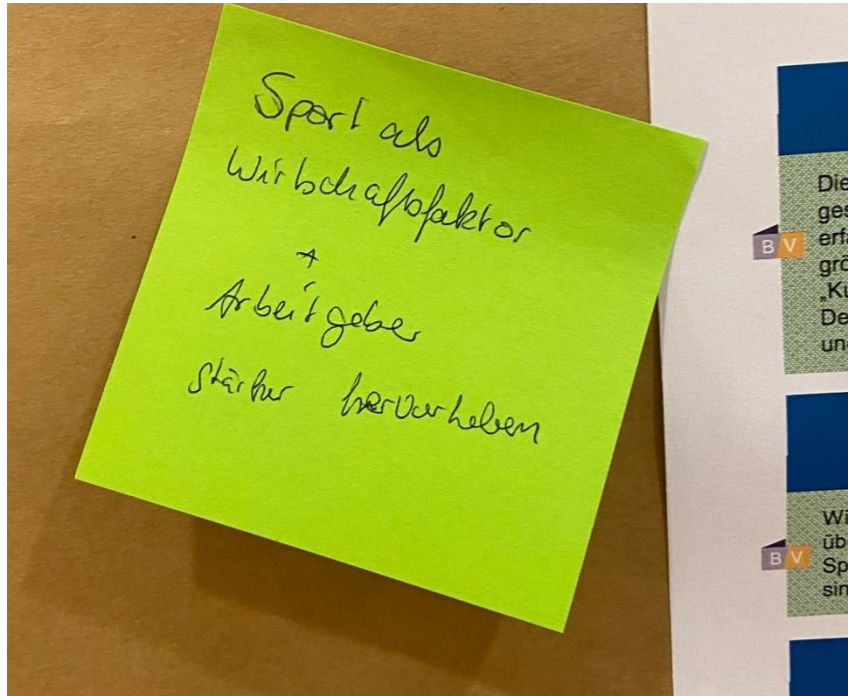 Sport als
Wirtschaftsfaktor
+
Arbeitgeber
stärker hervorheben
Die
ges
erfa
grö
„Ku
De
und
B V
Wi
übe
Sp
sin
B V